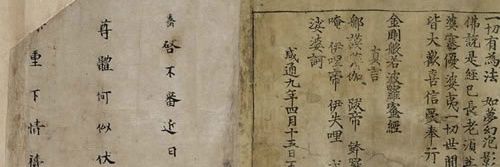 一切有為法 如夢幻泡影
佛說是經已長老須菩
婆塞優婆夷一切世間
皆大歡喜信受奉行
金剛般若波羅蜜經
真言
那謨 伽 跋帝
唵 伊哩帝 伊失哩
娑婆訶
咸通九年四月十五日
啓不審近日
尊體何似伏
重下情